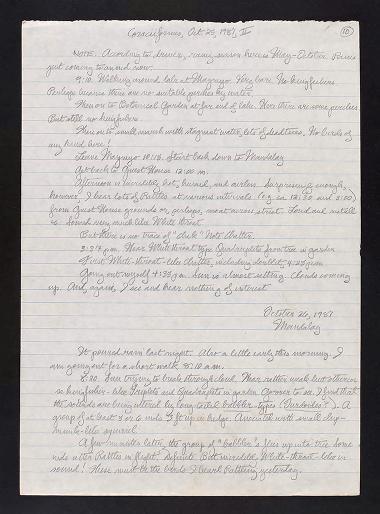 Coraciiformes, Oct 25, 1987, II
10
NOTE: According to driver, rainy season here is May-October. Rains
just coming to end now.
9:10. Walking around lake at Maymyo. Very bare. No kingfishers.
Perhaps because there are no suitable perches by water.
Then on to Botanical Garden at far end of lake. Here there are some perches.
But still no kingfishers.
Then on to small marsh with stagnant water, lots of dead trees. No birds of
any kind here!
Leave Maymyo 10:15. Start back down to Mandalay
Get back to Guest House 12:00 m.
Afternoon is incredibly hot, humid, and airless. Surprisingly enough,
however, I hear lots of Rattles at various intervals (e.g. ca 12:30 and 3:00)
from Guest House grounds or, perhaps, moat across street. Loud and metallic
Sounds very much like White-throat
But there is no trace of "dick" Note after.
3:37 p.m. Hear White-throat type Quadruplets from tree in garden
First White-throat-like Rattles, including doublet, 4:25 p.m.
Going out myself 4:35 p.m. Sun is almost setting. Clouds coming
up. And, again, I see and hear nothing of interest
October 26, 1987
Mandalay
It poured rain last night. Also a little early this morning. I
am going out for a short walk, 8:10 a.m.
8:20. Sun trying to break through cloud. Hear rather weak but otherwise
kingfisher-like Triplets and Quadruplets in garden. Go over to see. I find that
the sounds are being uttered by long-tailed babbler-types (Turdoides?). A
group of at least 3 or 4 inds. Flit up in hedge. Associated with small
squirrel
A few minutes later, the group of "babblers" flies up into tree. Some
inds utter Rattles in flight. Definite But incredibly White-throat-like in
sound! These must be the birds I heard Rattling yesterday.